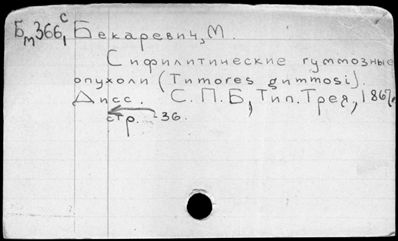 Бм366,с Бекаревич, М.
Сифилитические гуммозные
опухоли (Tumores gummosi).
Дисс. С.П.Б, Тип. Трея, 1867г.
стр. 36.